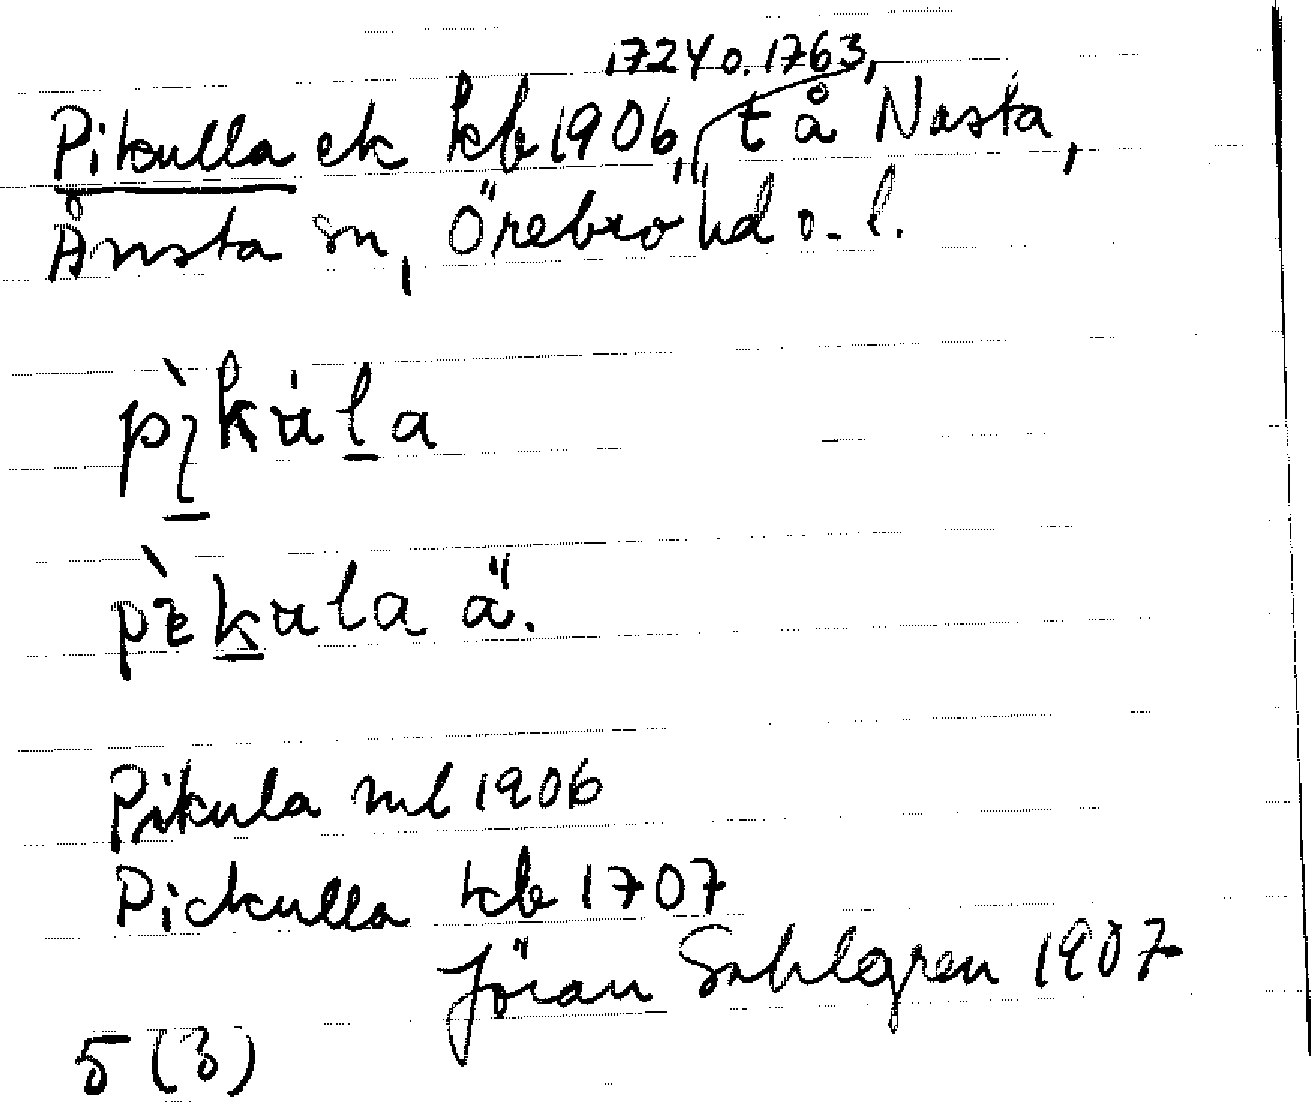 1724 o. 1763,
Pikulla ek kb 1906, t å Nasta,
Ånsta sn, Örebro hd o. l.
pìkùla
pèkula ä.
Pikula ml 1906
Pickulla kb 1707
Jöran Sahlgren 1907
5 (3)